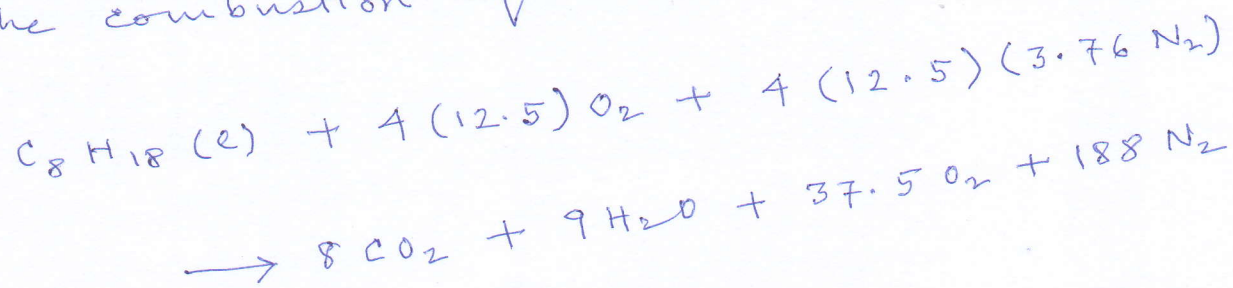 he combustion
C₈H₁₈ (l) + 4 (12.5) O₂ + 4 (12.5) (3.76 N₂)
⟶ 8 CO₂ + 9 H₂O + 37.5 O₂ + 188 N₂